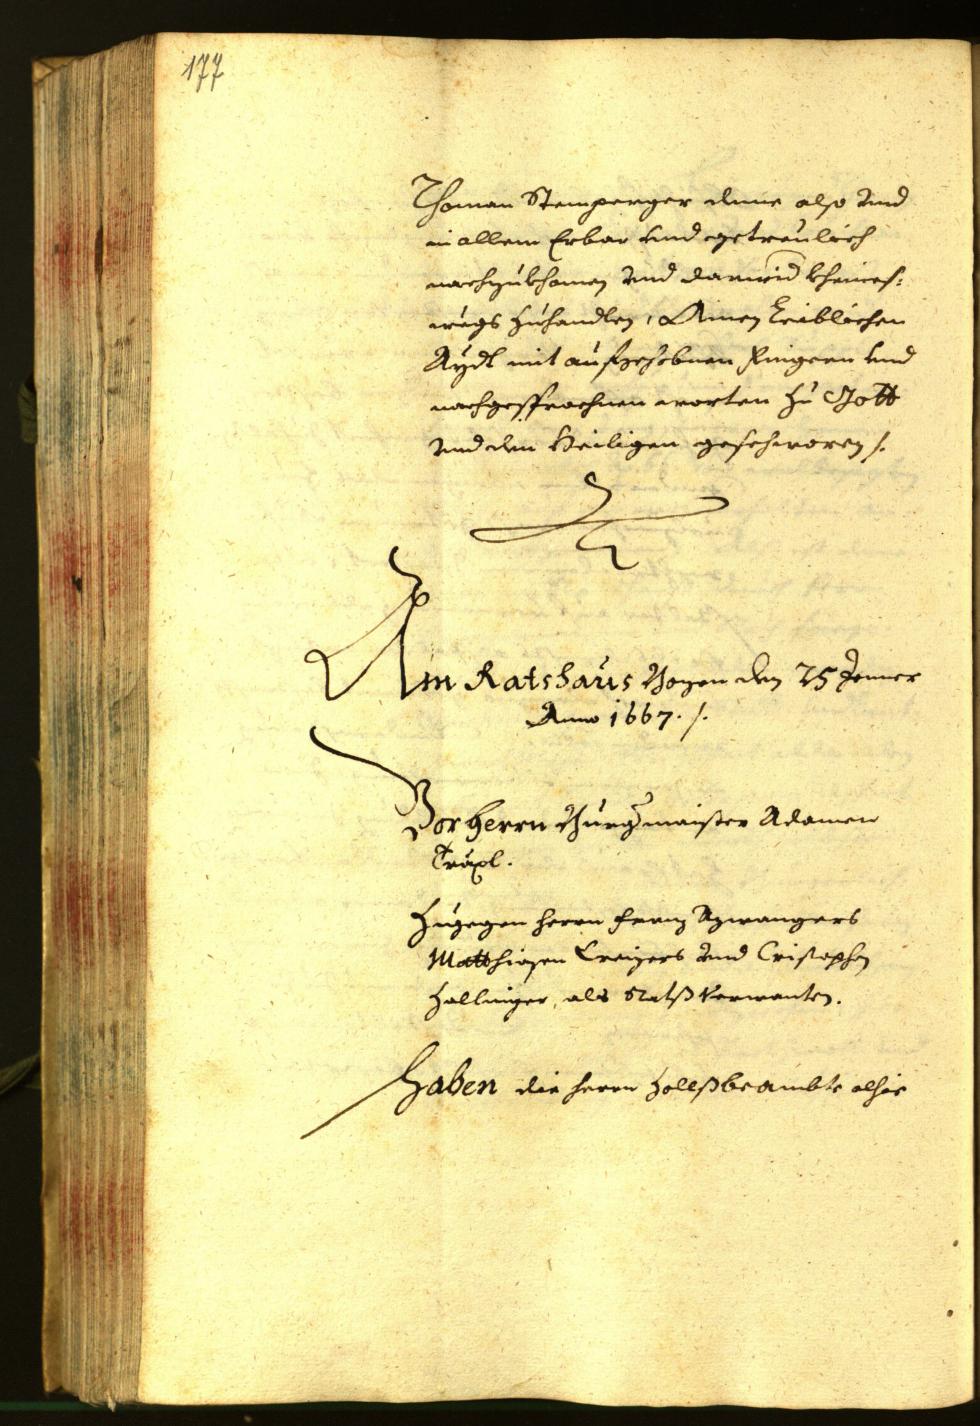 177
Thoman Stemperger deme also und
in allem Erbar und getreulich
nachzukhomen und darwid kheines:
weegs zuhandlen, Ainen Leiblichen
Aydt mit aufgehebnen Fingern und
nachgesprochnen worten zu Gott
und den Heiligen geschworen /.
Am Ratshaus Bozen den 25 Jenner
Anno 1667. /.
Vor Herrn Burgmaister Adamen
Zugegen herrn Franz Azwangers
Matthiasen Creizers und Cristophen
Hallinger, als Rats Verwanten.
Haben die herrn Zollsbeambte alhie